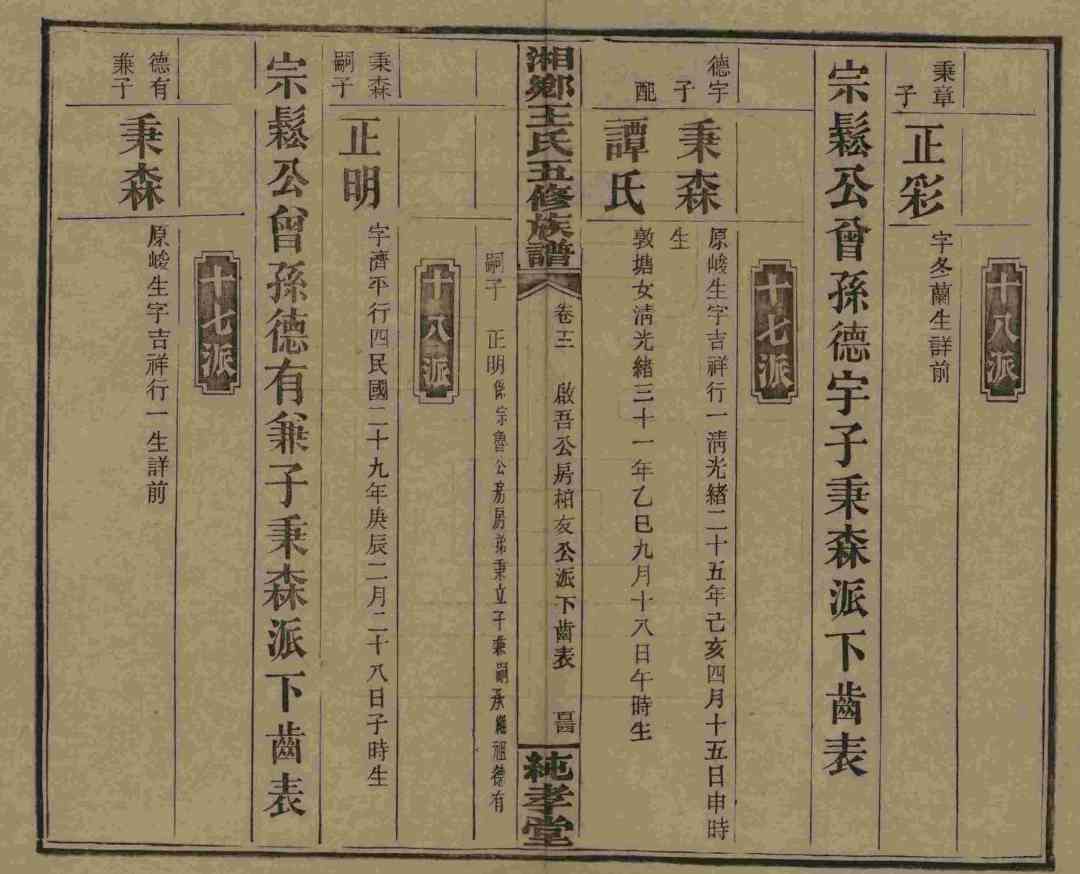 十八派
秉章子
正彩
字冬蘭生詳前
宗鬆公曾孫德宇子秉森派下齒表
十七派
德宇子
秉森
原峻生字吉祥行一淸光緒二十五年己亥四月十五日申時生
配
譚氏
敦塘女淸光緒三十一年乙巳九月十八日午時生
湘鄉王氏五修族譜
卷三 啟吾公房柏友公派下齒表
純孝堂
嗣子 正明係宗魯公房房弟秉立子兼嗣承繼祖德有
十八派
秉森嗣子
正明
字濟平行四民國二十九年庚辰二月二十八日子時生
宗鬆公曾孫德有兼子秉森派下齒表
十七派
德有兼子
秉森
原峻生字吉祥行一生詳前